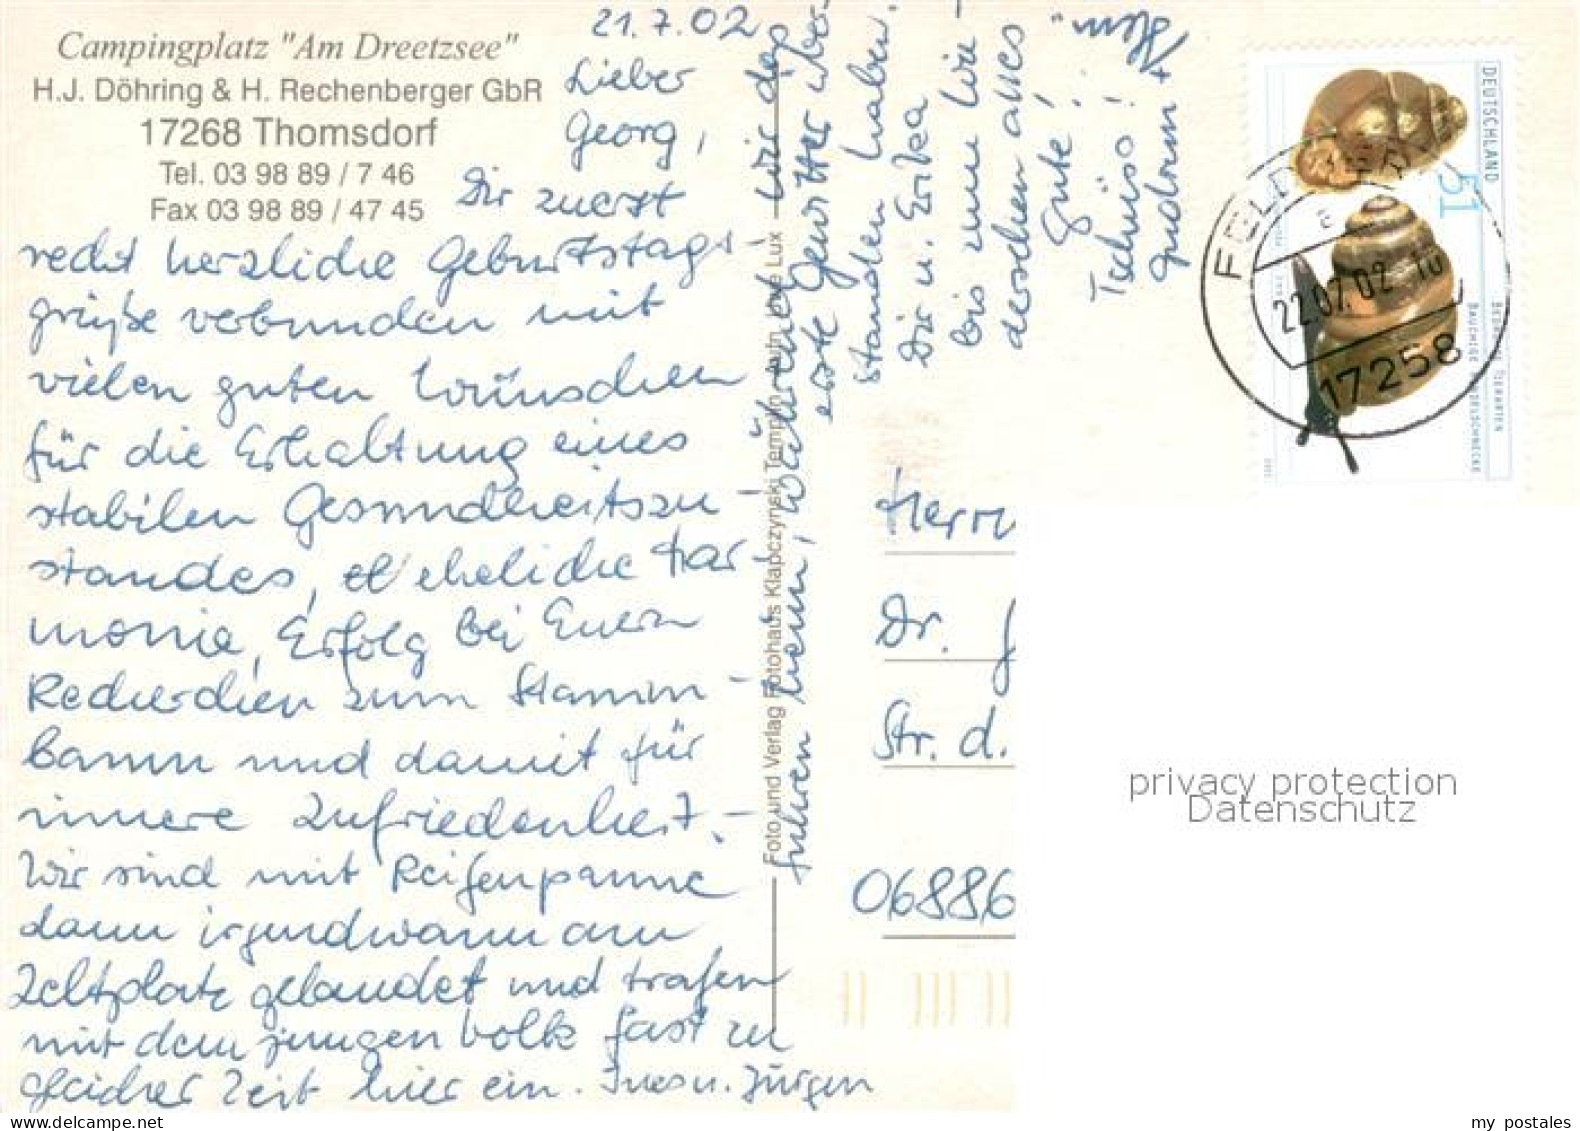 Campingplatz "Am Dreetzsee"
H.J. Döhring & H. Rechenberger GbR
17268 Thomsdorf
Tel. 03 98 89 / 7 46
Fax 03 98 89 / 47 45
21.7.02
Lieber
Georg,
Dir zuerst
recht herzliche Geburtstags-
grüße verbunden mit
vielen guten Wünschen
für die Erhaltung eines
stabilen Gesundheitszu-
standes, ehelicher Har-
monie, Erfolg bei Euern
Recherchen zum Stamm-
baum und damit für
innere Zufriedenheit. -
Wir sind mit Reifenpanne
dann irgendwann am
Zeltplatz gelandet und trafen
mit dem jungen Volk fast zu
gleicher Zeit hier ein. Ines u. Jürgen
fuhren heim, während
wir das
erste Gewitter über-
standen haben.
Dir u. Erika
bis zum Wie-
dersehen alles
Gute!
Tschüso!
Gudrun +
"Hem"
Foto und Verlag Fotohaus Klapczynski Templin, Auth. Lux
DEUTSCHLAND
51
BEDROHTE TIERARTEN
BAUCHIGE WINDELSCHNECKE
FELDBERG
a
22.07.02-10
17258
Herrn
Dr. J
Str. d.
06886
privacy protection
Datenschutz
my postales